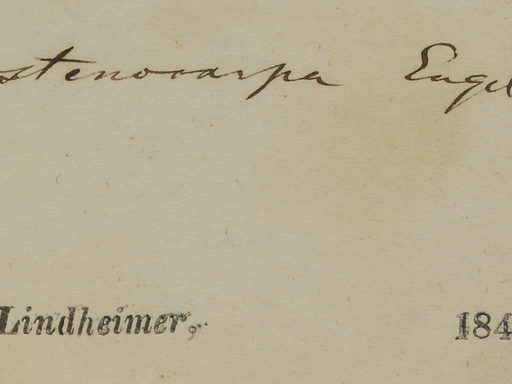 stenocarpa Engel
Lindheimer, 184